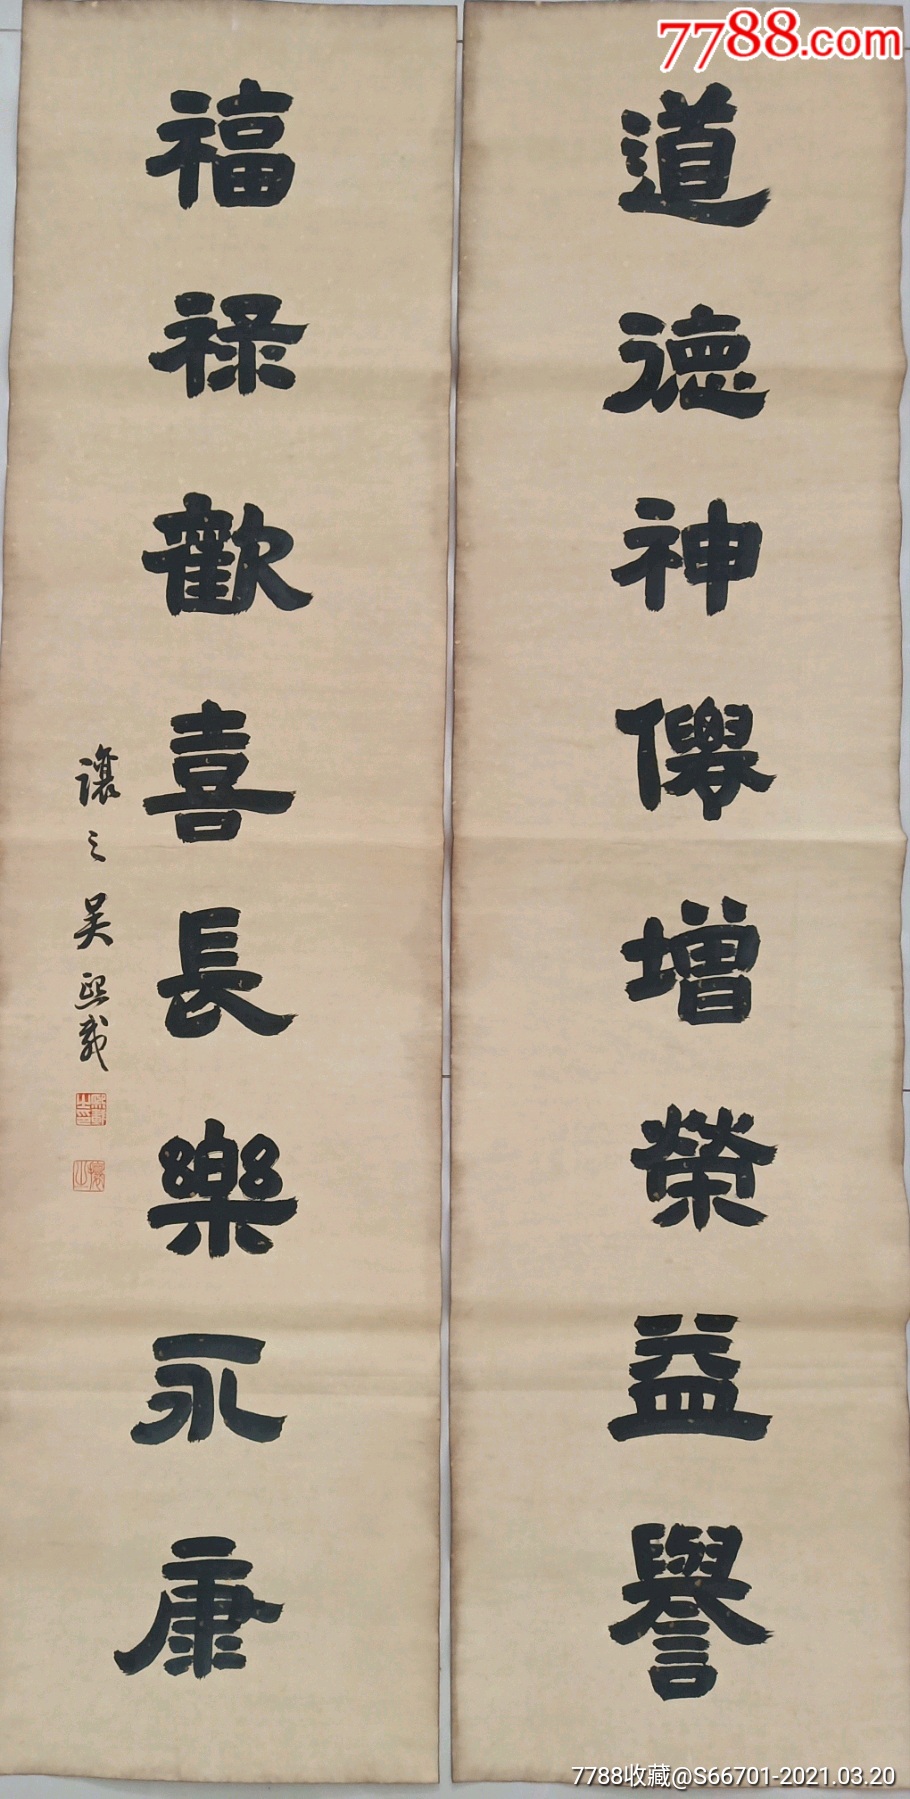 7788.com
道德神僊增榮益譽
福祿歡喜長樂永康
讓之吳熙載
7788收藏@S66701-2021.03.20